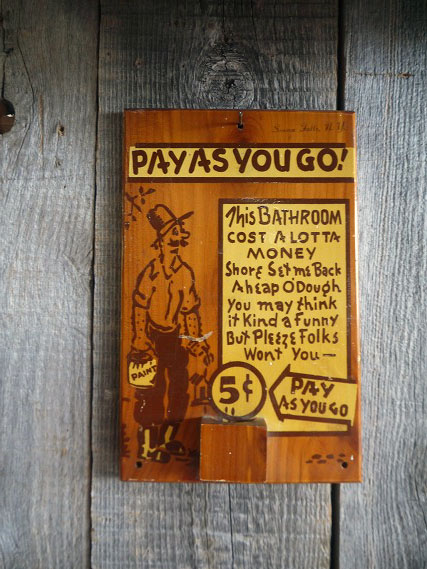 Seneca Falls, N.Y.
PAY AS YOU GO!
This BATHROOM
COST A LOTTA
MONEY
Shore Set me Back
A heap O'Dough
You may think
it Kind a Funny
But PLEEZE Folks
Wont You —
5¢
PAY
AS YOU GO
PAINT